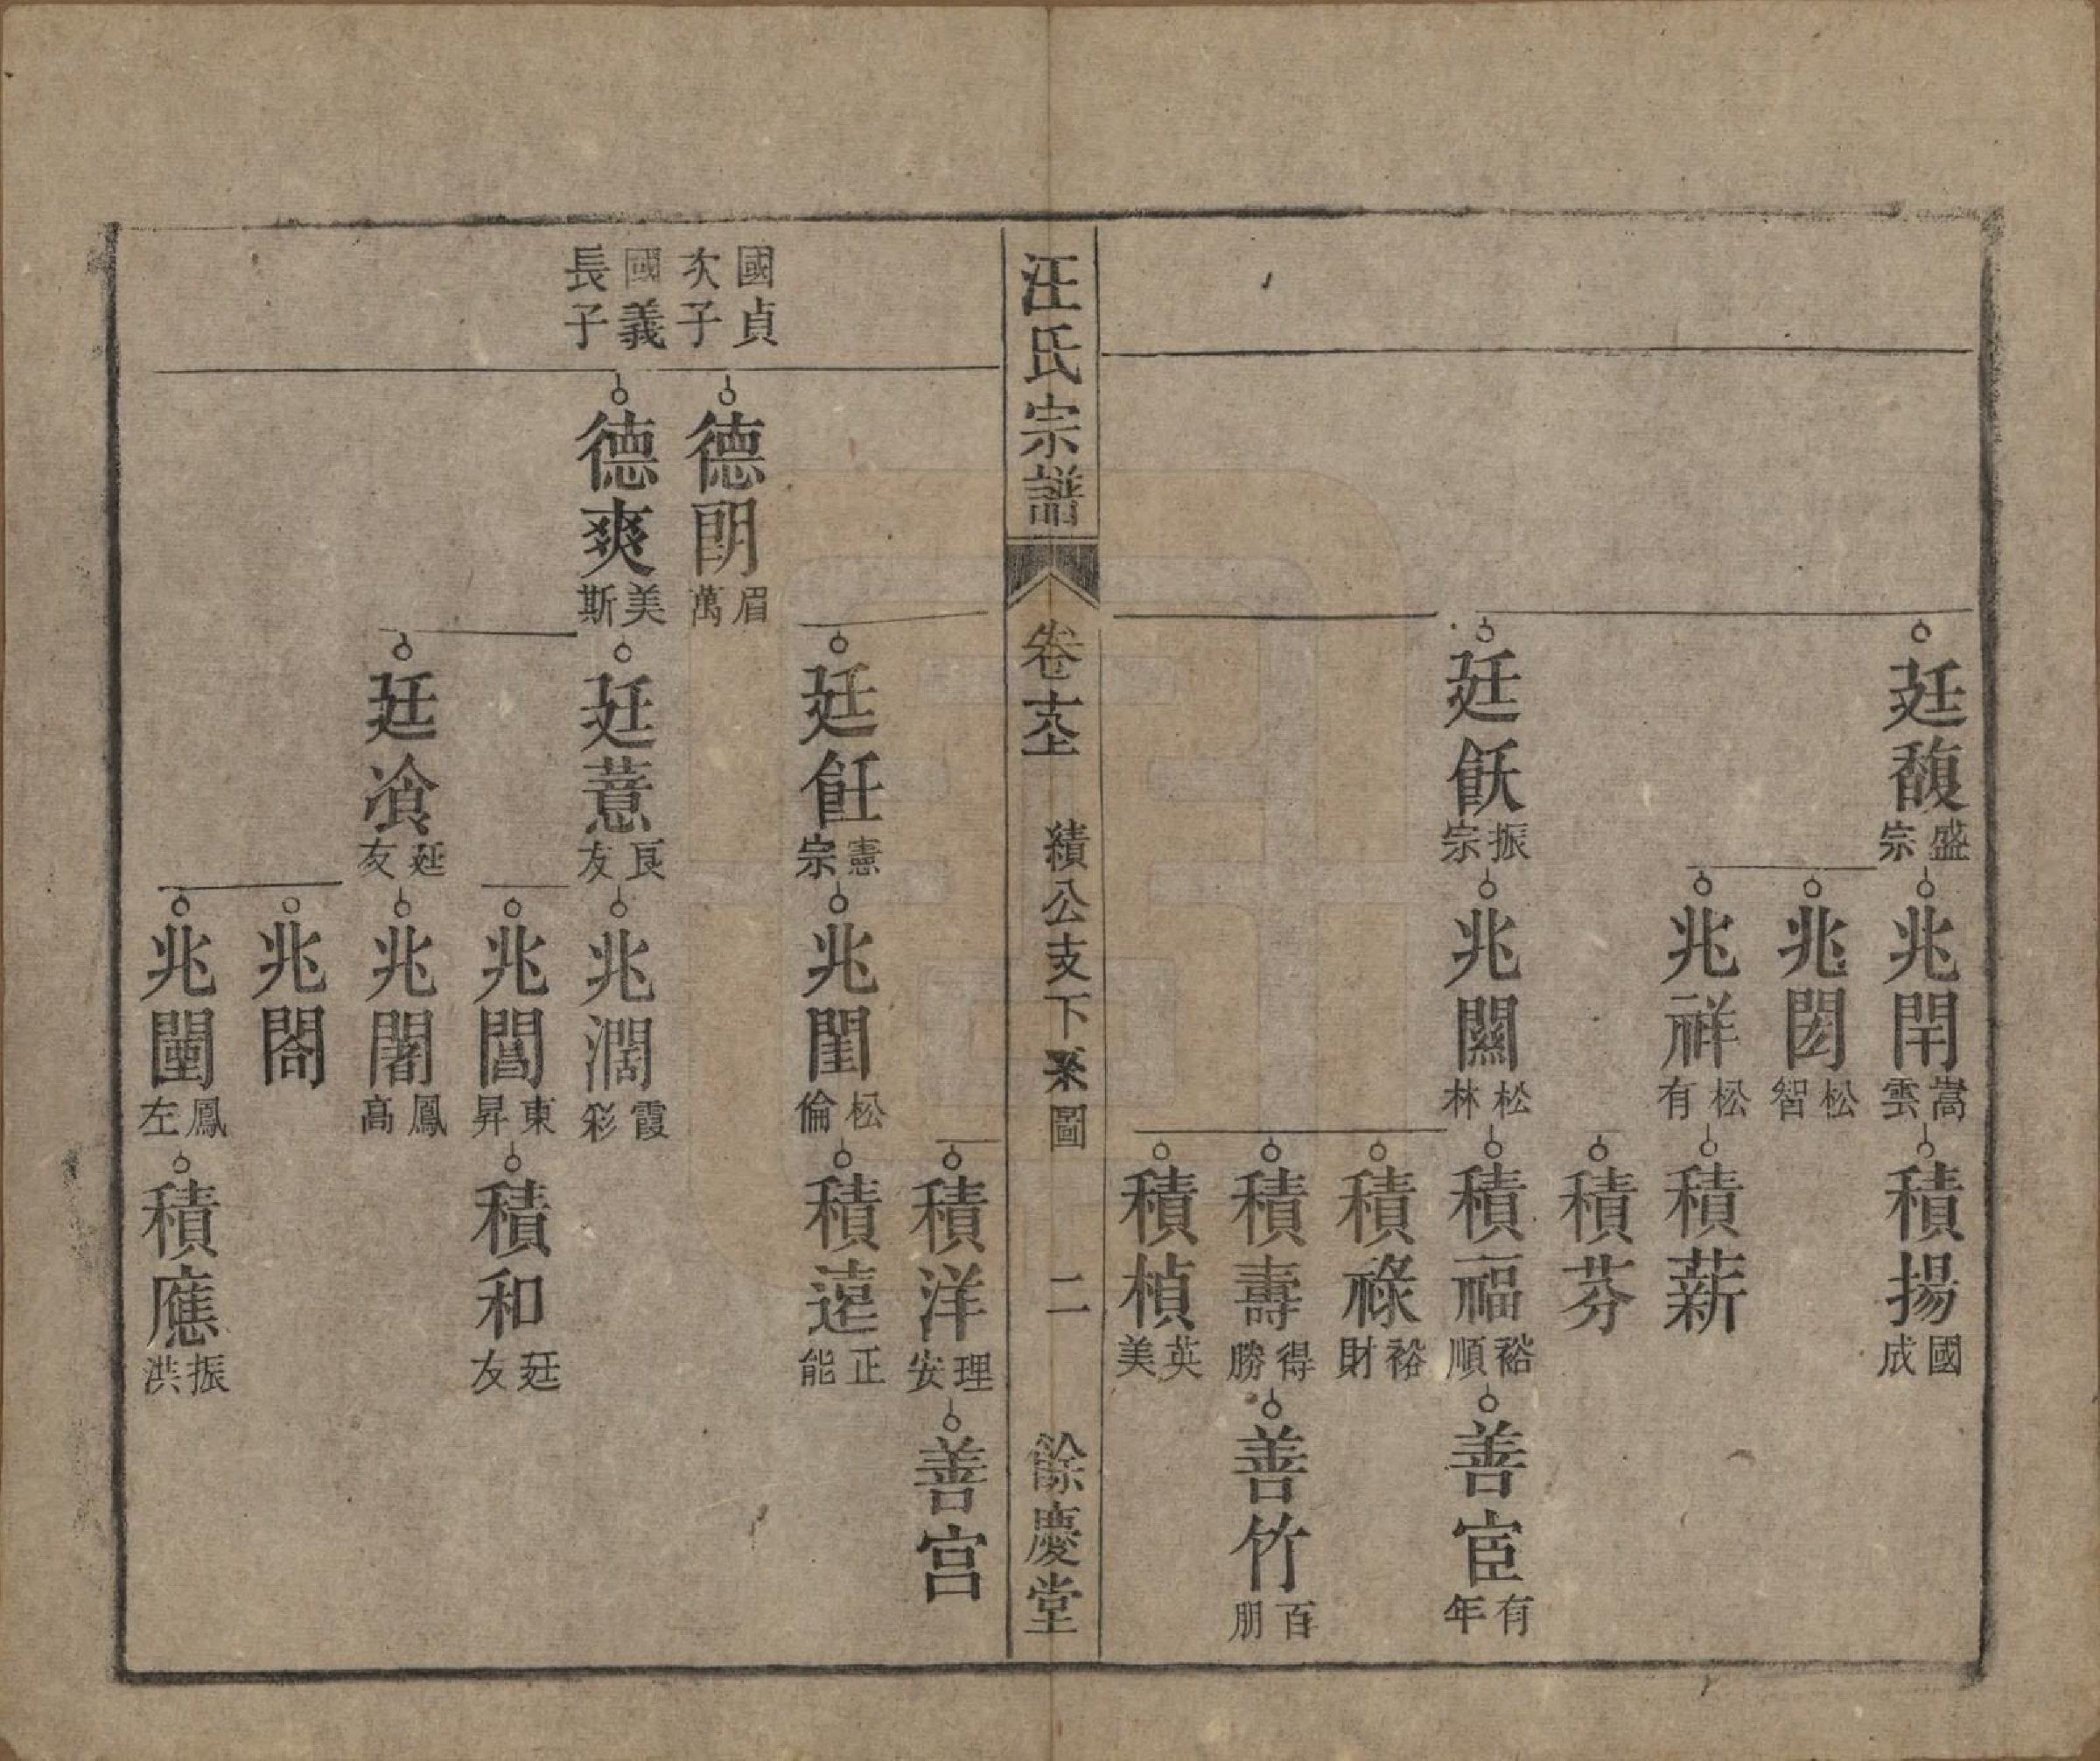 廷馥
盛宗
兆閈
嵩雲
積揚
國成
兆閎
松智
兆祥
松有
積薪
積芬
廷飫
振宗
兆闕
松林
積福
裕順
善宦
有年
積祿
裕財
積壽
得勝
善竹
百朋
積楨
英美
汪氏宗譜
卷十六上
績公支下系圖
二
餘慶堂
積洋
理安
善宫
廷飪
憲宗
兆閨
松倫
積遠
正能
國貞次子
德朗
眉萬
國義長子
德爽
美斯
廷薏
良友
兆濶
霞彩
兆閶
東昇
積和
廷友
廷飡
廷友
兆闍
鳳高
兆閤
兆閩
鳳左
積應
振洪